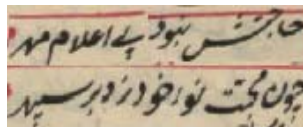 حاجتش نبود پی اعلام مهر
چون محبت نوا خود زد بر سپهر